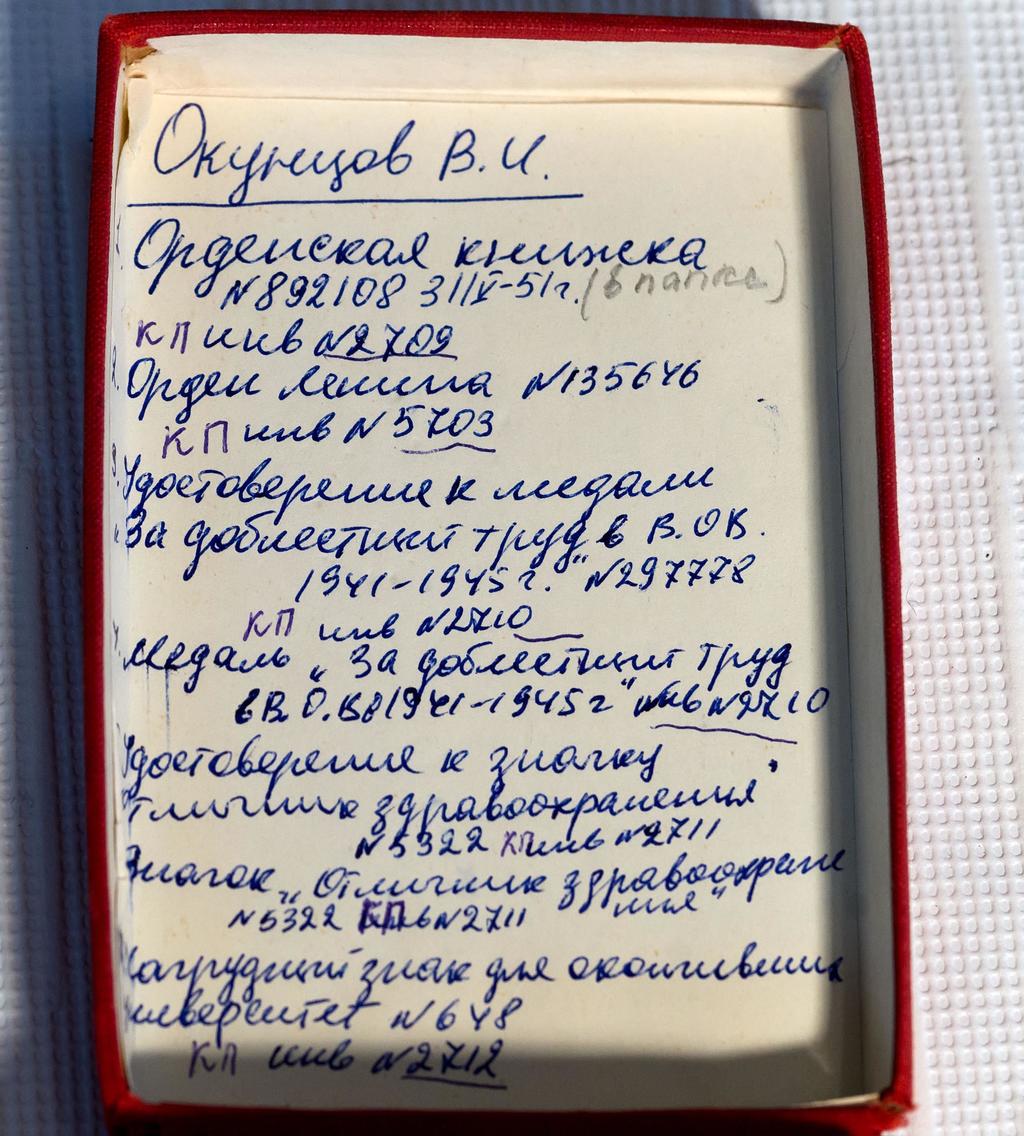 Окунцов В.И.
1. Орденская книжка
№892108 31/X-51г. (в папке)
КП инв №2709
2. Орден Ленина №135646
КП инв №5703
3. Удостоверение к медали
"За доблестный труд в В.ОВ.
1941-1945г." №297778
КП инв №2710
4. Медаль „За доблестный труд
в В.О.В 1941-1945г" инв №2710
Удостоверение к значку
Отличник здравоохранения"
№5322 КП инв №2711
Значок „Отличник здравоохране
ния"
№5322 КП инв №2711
Нагрудный знак для окончивших
университет №648
КП инв №2712